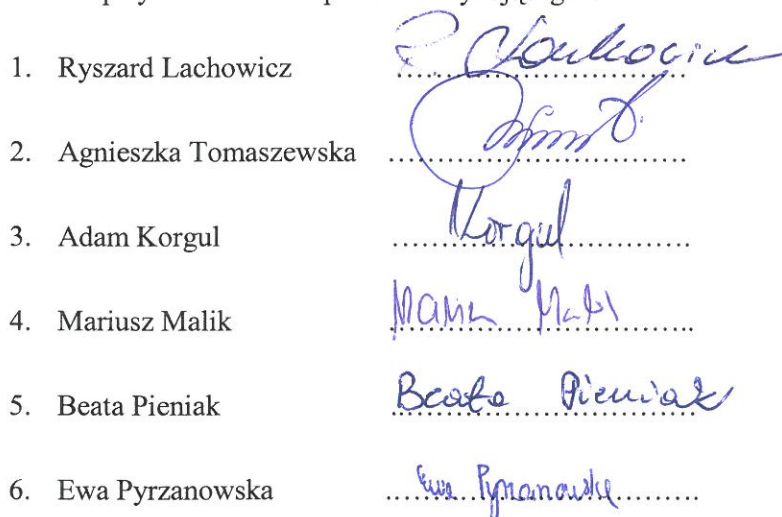 1. Ryszard Lachowicz
2. Agnieszka Tomaszewska
3. Adam Korgul Korgul
4. Mariusz Malik
5. Beata Pieniak Beata Pieniak
6. Ewa Pyrzanowska Ewa Pyrzanowska